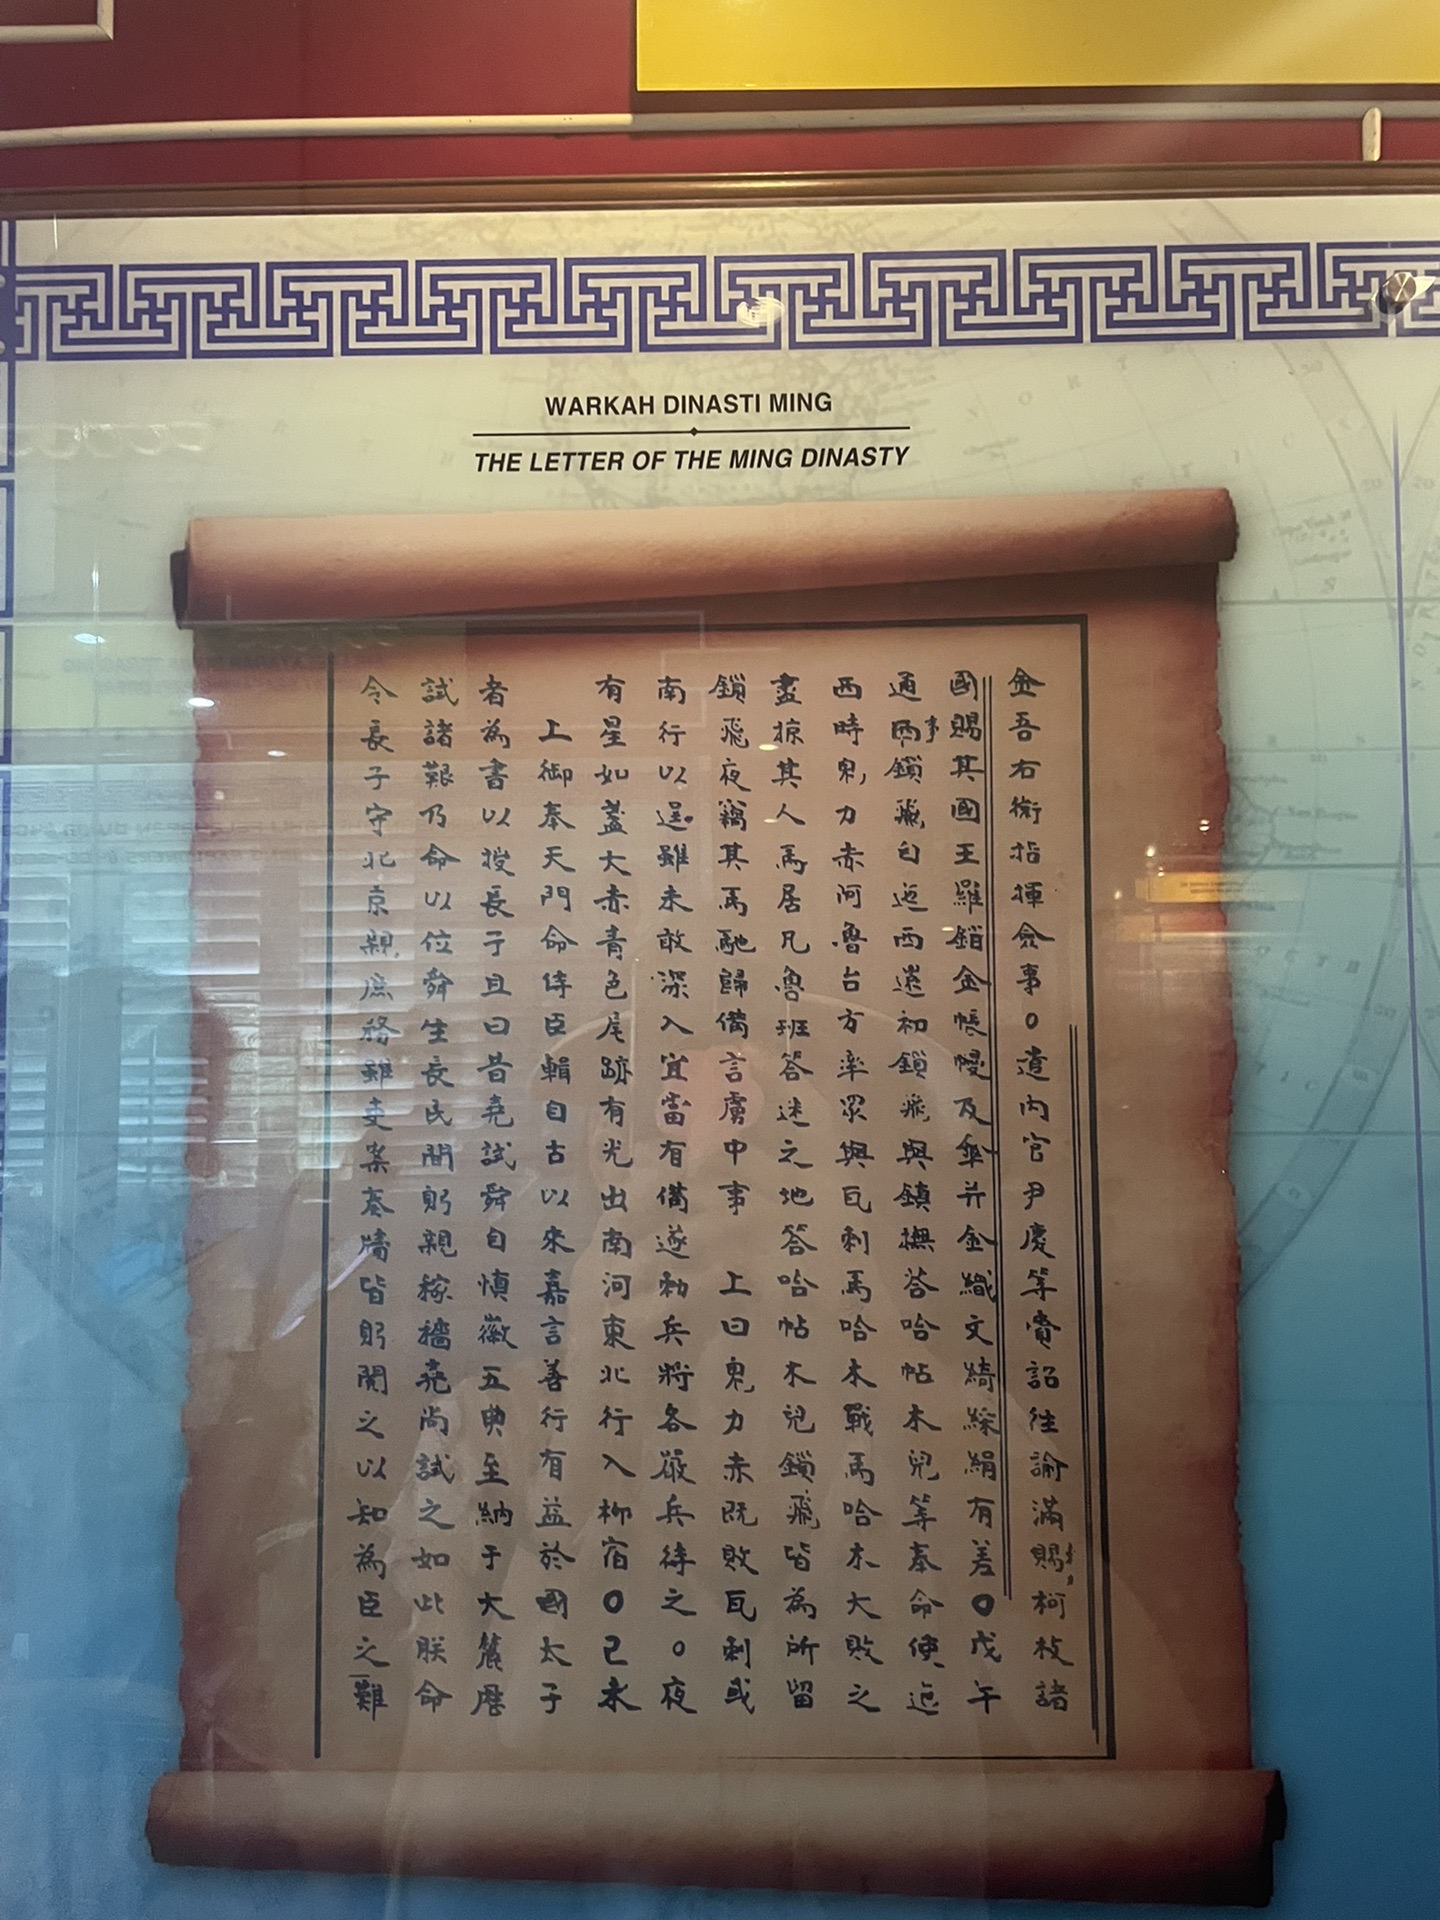 WARKAH DINASTI MING
THE LETTER OF THE MING DINASTY
金吾右衛指揮僉事○遣內官尹慶等賫詔往諭滿賜柯枝諸
國賜其國王羅銷金帳幔及傘并金織文綺綵絹有差○戊午
通事鎖飛自迤西還初鎖飛與鎮撫答哈帖木兒等奉命使迤
西時鬼力赤阿魯台方率眾與瓦剌馬哈木戰馬哈木大敗之
盡掠其人馬居凡魯班答迷之地答哈帖木兒鎖飛皆為所留
鎖飛夜竊其馬馳歸備言虜中事 上曰鬼力赤既敗瓦剌或
南行以逞雖未敢深入宜當有備遂勑兵將各嚴兵待之○夜
有星如盞大赤青色尾跡有光出南河東北行入柳宿○己未
上御奉天門命侍臣輯自古以來嘉言善行有益於國太子
者為書以授長子且曰昔堯試舜自慎徽五典至納于大麓歷
試諸艱乃命以位舜生長民間躬親稼穡堯尚試之如此朕命
令長子守北京親庶務雖吏案奏牘皆躬閱之以知為臣之難